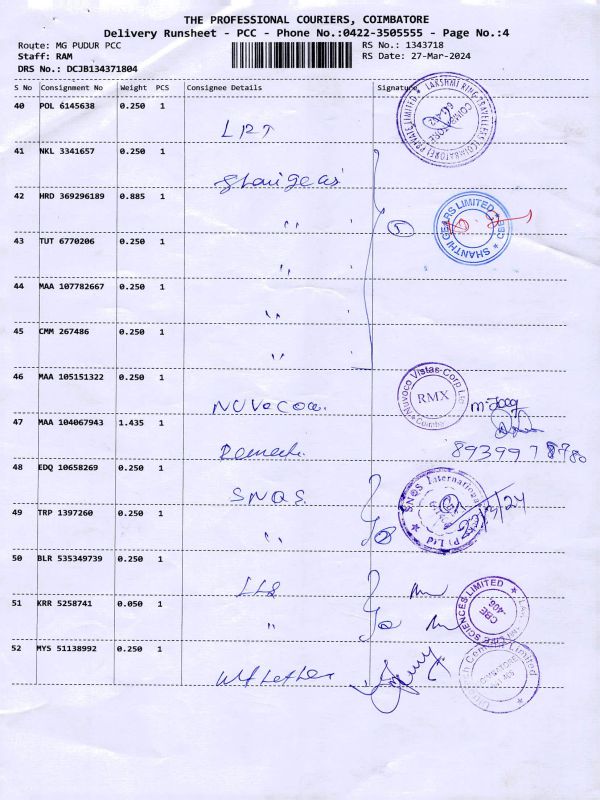 THE PROFESSIONAL COURIERS, COIMBATORE
Delivery Runsheet - PCC - Phone No.:0422-3505555 - Page No.:4
Route: MG PUDUR PCC
RS No.: 1343718
Staff: RAM
RS Date: 27-Mar-2024
DRS No.: DCJB134371804
S No Consignment No Weight PCS Consignee Details Signature
40 POL 6145638 0.250 1
LRT
LAKSHMI RING TRAVELLERS (COIMBATORE) PRIVATE LIMITED
41 NKL 3341657 0.250 1
42 HRD 369296189 0.885 1
" 5
SHANTHI GEARS LIMITED CBE
43 TUT 6770206 0.250 1
"
44 MAA 107782667 0.250 1
"
45 CMM 267486 0.250 1
"
46 MAA 105151322 0.250 1
Nuvoco
Nuvoco Vistas Corp Ltd
RMX
47 MAA 104067943 1.435 1
48 EDQ 10658269 0.250 1
SNQS
SNQS International
(P) Ltd
49 TRP 1397260 0.250 1
"
50 BLR 535349739 0.250 1
51 KRR 5258741 0.050 1
"
LIFE SCIENCES LIMITED
CBE
52 MYS 51138992 0.250 1